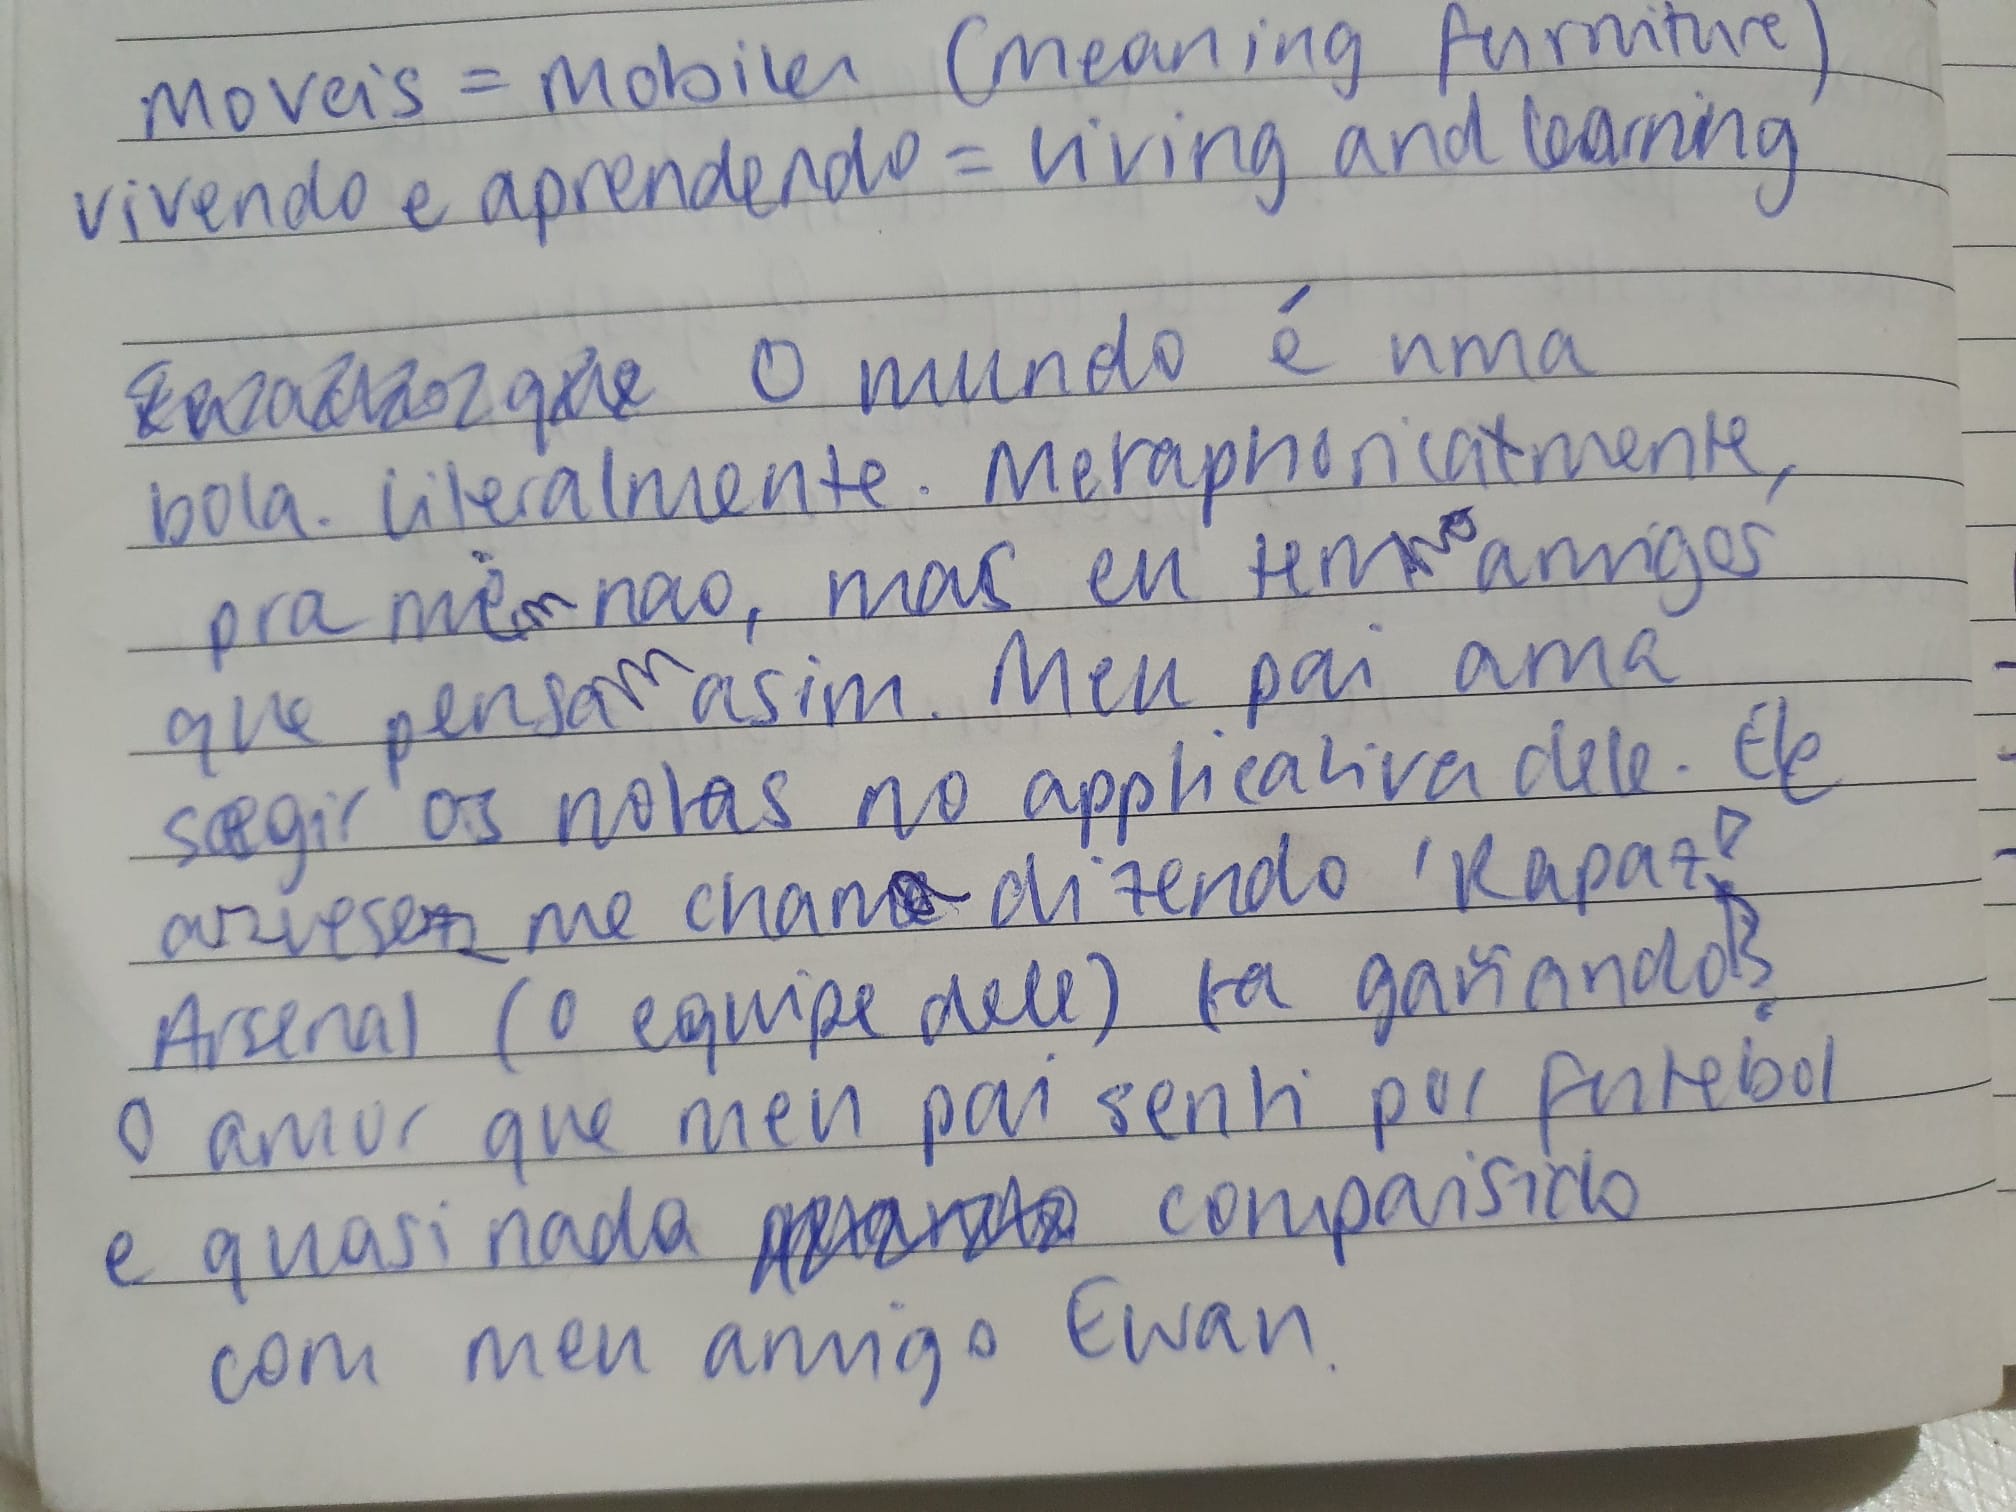 moveis = mobiles (meaning furniture)
vivendo e aprendendo = living and learning
O mundo é uma
bola. Literalmente. Metaphoricatmente,
pra mêm nao, mas eu temno amigos
que pensam asim. Meu pai ama
segir os notas no applicativa dele. Ele
me chama dizendo 'Rapaz!
Arsenal (o equipe dele) ta gañando?
O amor que meu pai senti por futebol
e quasi nada compaisido
com meu amigo Ewan.